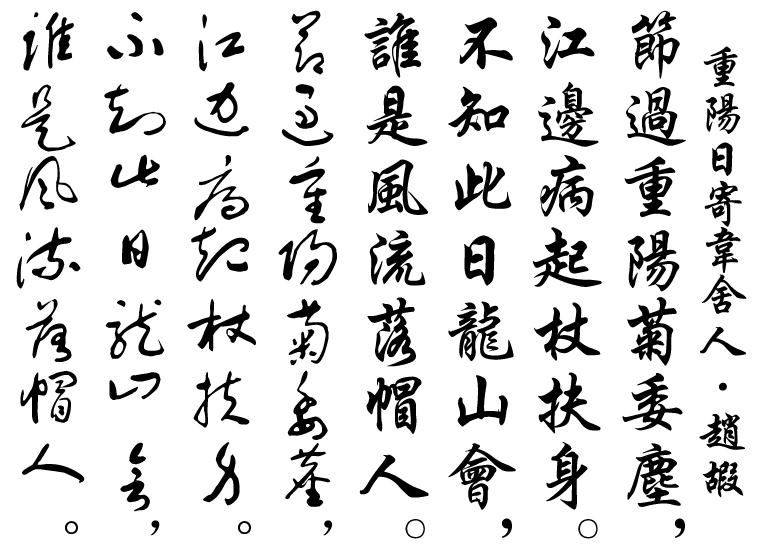 重陽日寄韋舍人•趙嘏
節過重陽菊委塵，
江邊病起杖扶身。
不知此日龍山會，
誰是風流落帽人。
節過重陽菊委塵，
江邊病起杖扶身。
不知此日龍山會，
誰是風流落帽人。